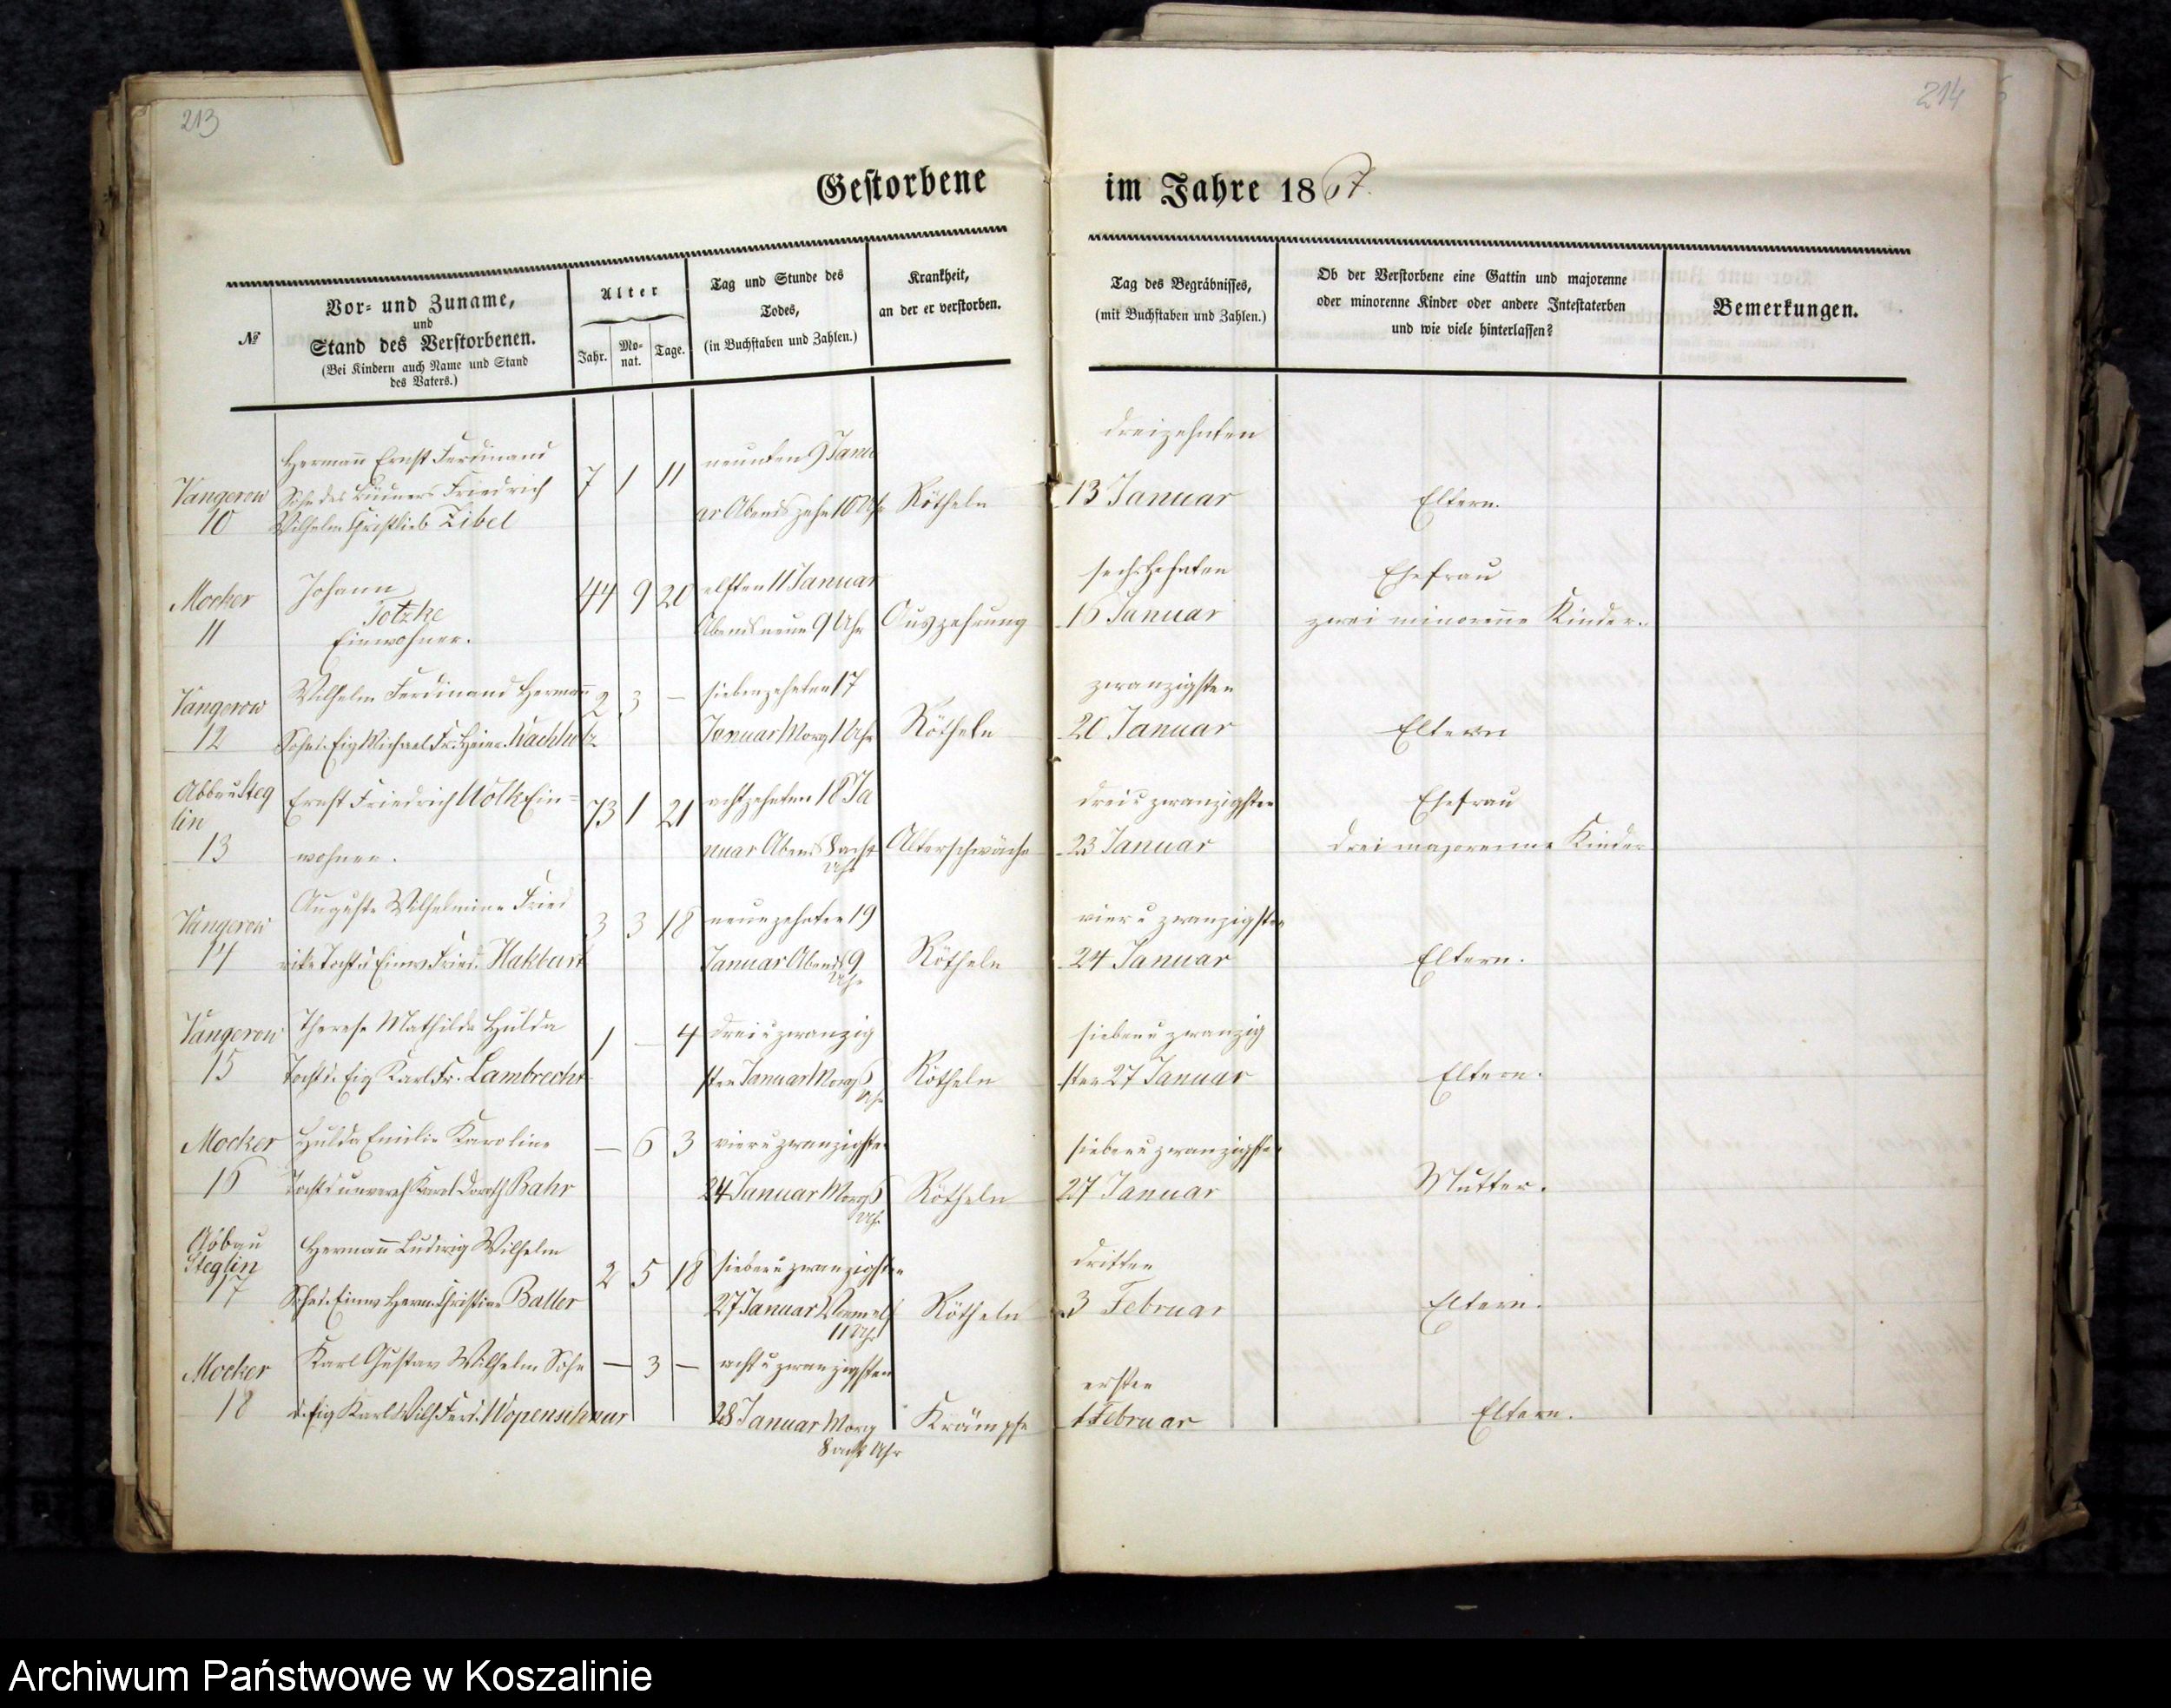 213
214
Gestorbene im Jahre 1867.
№
Vor- und Zuname,
und
Stand des Verstorbenen.
(Bei Kindern auch Name und Stand
des Vaters.)
Alter
Jahr.
Mo-
nat.
Tage.
Tag und Stunde des
Todes,
(in Buchstaben und Zahlen.)
Krankheit,
an der er verstorben.
Tag des Begräbnisses,
(mit Buchstaben und Zahlen.)
Ob der Verstorbene eine Gattin und majorenne
oder minorenne Kinder oder andere Intestaterben
und wie viele hinterlassen?
Bemerkungen.
Vangerow
10
Hermann Ernst Ferdinand
Sohn des Büdners Friedrich
Wilhelm Christlieb Tibel
7 1 11
neunten 9 Janu
ar Abends zehn 10 Uhr
Rötheln
dreizehnten
13 Januar
Eltern.
Mocker
11
Johann
Totzke
Einwohner.
44 9 20
elften 11 Januar
Abends neun 9 Uhr
Auszehrung
sechszehnten
16 Januar
Ehefrau
zwei minorenne Kinder.
Vangerow
12
Wilhelm Ferdinand Hermann
Sohn d. Eig Michael Fr. Heinr. Wachholz
2 3 —
siebenzehnten 17
Januar Morg 1 Uhr
Rötheln
zwanzigsten
20 Januar
Eltern
Abbau Steg
lin
13
Ernst Friedrich Wolk Ein=
wohner.
73 1 21
achtzehnten 18 Ja
nuar Abends 8 acht
Uhr
Altersschwäche
drei u zwanzigsten
23 Januar
Ehefrau
drei majorenne Kinder
Vangerow
14
Auguste Wilhelmine Fried
rike Tocht d Einw Fried. Hakbart
3 3 18
neunzehnten 19
Januar Abends 9
Uhr
Rötheln
vier u zwanzigsten
24 Januar
Eltern.
Vangerow
15
Therese Mathilde Hulda
Tocht d. Eig Karl Fr. Lambrecht
1 — 4
drei u zwanzig
sten Januar Morg
Uhr
Rötheln
sieben u zwanzig
sten 27 Januar
Eltern.
Mocker
16
Hulda Emilie Karoline
Tocht d unvereh Karol Doroth Bahr
— 6 3
vier u zwanzigsten
24 Januar Morg
Uhr
Rötheln
sieben u zwanzigsten
27 Januar
Mutter.
Abbau
Steglin
17
Hermann Ludwig Wilhelm
Sohn d. Einw Herm Christian Batler
2 5 18
sieben u zwanzigsten
27 Januar
11 Uhr
Rötheln
dritten
3 Februar
Eltern.
Mocker
18
Karl Gustav Wilhelm Sohn
d. Eig Karl Wilh Ferd. Wopenschnur
— 3 —
acht u zwanzigsten
28 Januar Morg
8 acht Uhr
Krämpfe
ersten
1 Februar
Eltern.
Archiwum Państwowe w Koszalinie